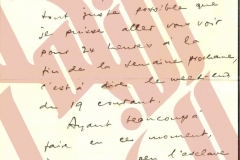 tout juste possible que
je puisse aller vous voir
pour 24 heures à la
fin de la semaine prochaine,
c'est à dire le week-end
du 19 courant.
Ayant beaucoup à
faire en ce moment,
l'esclave